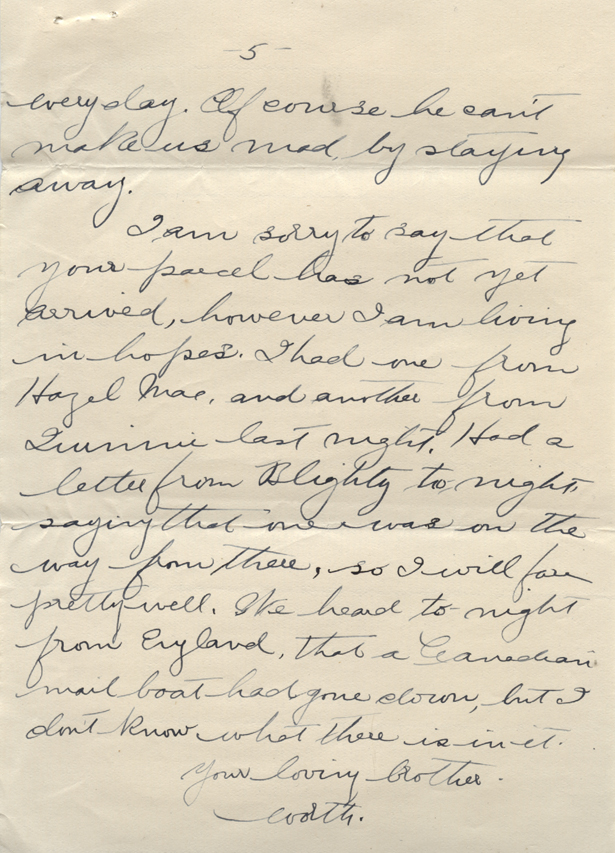 -5-
everyday. Of course he can't
make us mad, by staying
away.
I am sorry to say that
your parcel has not yet
arrived, however I am living
in hopes. I had one from
Hazel Mac, and another from
last night. Had a
letter from Blighty to-night,
saying that one was on the
way from there, so I will fare
pretty well. We heard to-night
from England, that a Canadian
mail boat had gone down, but I
don't know what there is in it.
Your loving brother.
Worth.